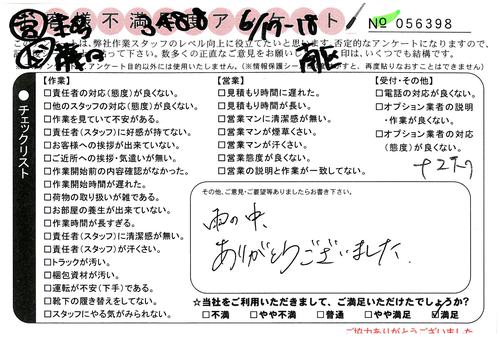 お客様不満度アンケート
№ 056398
このアンケートは、弊社作業スタッフのレベル向上に役立てたいと思います。否定的なアンケートになりますので、
チェックリスト
【作業】
□責任者の対応(態度)が良くない。
□他のスタッフの対応(態度)が良くない。
□作業を見ていて不安がある。
□責任者(スタッフ)に好感が持てない。
□お客様への挨拶が出来ていない。
□ご近所への挨拶・気遣いが無い。
□作業開始前の内容確認がなかった。
□作業開始時間が遅れた。
□荷物の取り扱いが雑である。
□お部屋の養生が出来ていない。
□作業時間が長すぎる。
□責任者(スタッフ)に清潔感が無い。
□責任者(スタッフ)が汗くさい。
□トラックが汚い。
□梱包資材が汚い。
□運転が不安(下手)である。
□靴下の履き替えをしてない。
□スタッフにやる気がみられない。
【営業】
□見積もり時間に遅れた。
□見積もり時間が長い。
□営業マンに清潔感が無い。
□営業マンが煙草くさい。
□営業マンが汗くさい。
□営業態度が良くない。
□営業の説明と作業が一致してない。
【受付・その他】
□電話の対応が良くない。
□オプション業者の説明
・作業が良くない。
□オプション業者の対応
(態度)が良くない。
その他、ご意見・ご要望等ありましたらお書き下さい。
雨の中、
ありがとうございました
☆当社をご利用いただきまして、ご満足いただけたでしょうか?
□不満 □やや不満 □普通 □やや満足 ☑満足
ご協力ありがとうございました